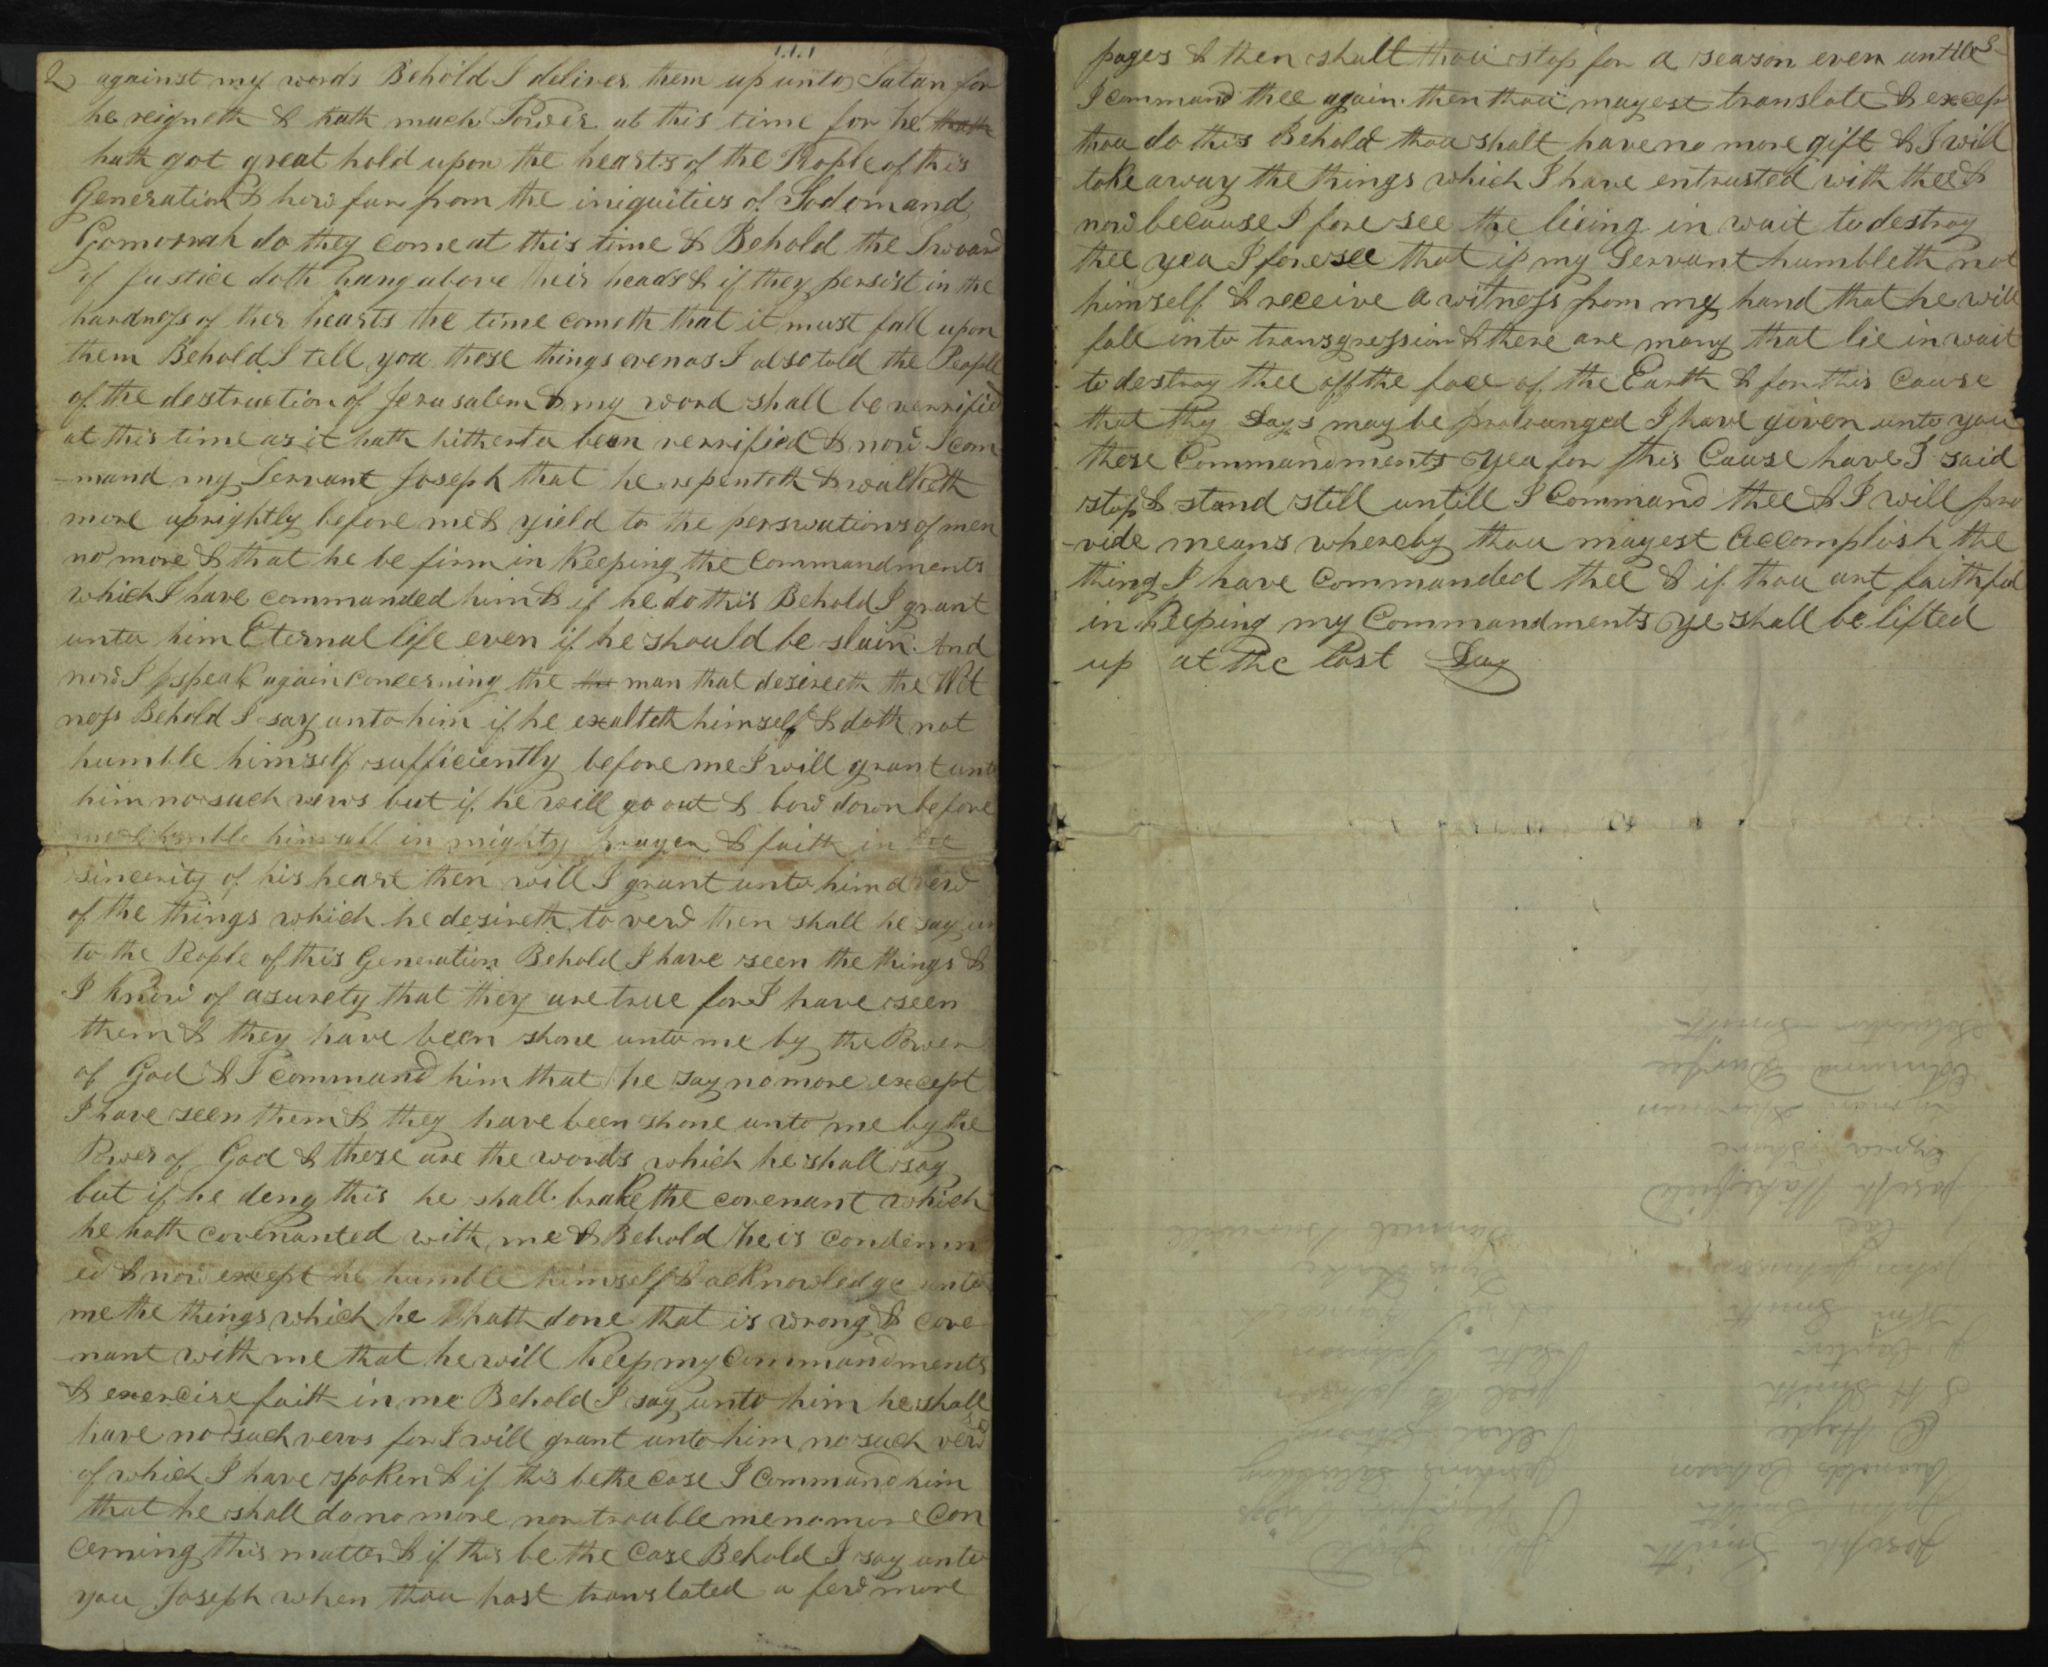 2 against my words Behold I deliver them up unto Satan for
he reigneth & hath much Power at this time for he
hath got great hold upon the hearts of the People of this
Generation & how far from the iniquities of Sodom and
Gomorrah do they come at this time & Behold the Sword
of Justice doth hang above their heads & if they persist in the
hardness of ther hearts the time cometh that it must fall upon
them Behold I tell you these things even as I also told the People
of the destruction of Jerusalem & my word shall be verrified
at this time as it hath hitherto been verrified & now I com
-mand my Servant Joseph that he repenteth & walketh
more uprightly before me & yield to the perswations of men
no more & that he be firm in Keeping the Commandments
which I have commanded him & if he do this Behold I grant
unto him Eternal life even if he should be slain. And
now I pspeak again concerning the the man that desireth the Wit
ness Behold I say unto him if he exalteth himself & doth not
humble himself sufficiently before me I will grant unto
him no such vews but if he will go out & bow down before
me & humble himself in mighty prayer & faith in the
sincerity of his heart then will I grant unto him a vew
of the things which he desireth to vew then shall he say un
to the People of this Generation Behold I have seen the things &
I know of a surety that they are true for I have seen
them & they have been shone unto me by the Power
of God & I command him that he say no more except
I have seen them & they have been shone unto me by the
Power of God & these are the words which he shall say
but if he deny this he shall brake the covenant which
he hath covenanted with me & Behold he is condemn
ed & now except he humble himself & acknowledge unto
me the things which he hath done that is wrong & cove
nant with me that he will Keep my Commandments
& exercise faith in me Behold I say unto him he shall
have no such vews for I will grant unto him no such vews
of which I have spoken & if this be the case I command him
that he shall do no more nor trouble me no more Con
cerning this matter & if this be the Case Behold I say unto
you Joseph when thou hast translated a few more
3
pages & then shalt thou stop for a season even untill
I command thee again then thou mayest translate & excep
thou do this Behold thou shalt have no more gift & I will
take away the things which I have entrusted with thee &
now because I fore see the lieing in wait to destroy
thee yea I foresee that if my Servant humbleth not
himself & receive a witness from my hand that he will
fall into transgression & there are many that lie in wait
to destroy thee off the face of the Earth & for this Cause
that thy Days may be prolonged I have given unto you
these Commandments yea for this Cause have I said
stop & stand still untill I Command thee & I will pro
-vide means whereby thou mayest accomplish the
thing I have commanded thee & if thou art faithful
in Keeping my Commandments ye shall be lifted
up at the last Day
Sylvester Smith
Edmund Durfee
Lyman Sherman
Joseph Wakefield
Lee
John Johnson
Wm Smith
S H Smith
O Hyde
John Smith
Joseph Smith
Seth Johnson
Joel H Johnson